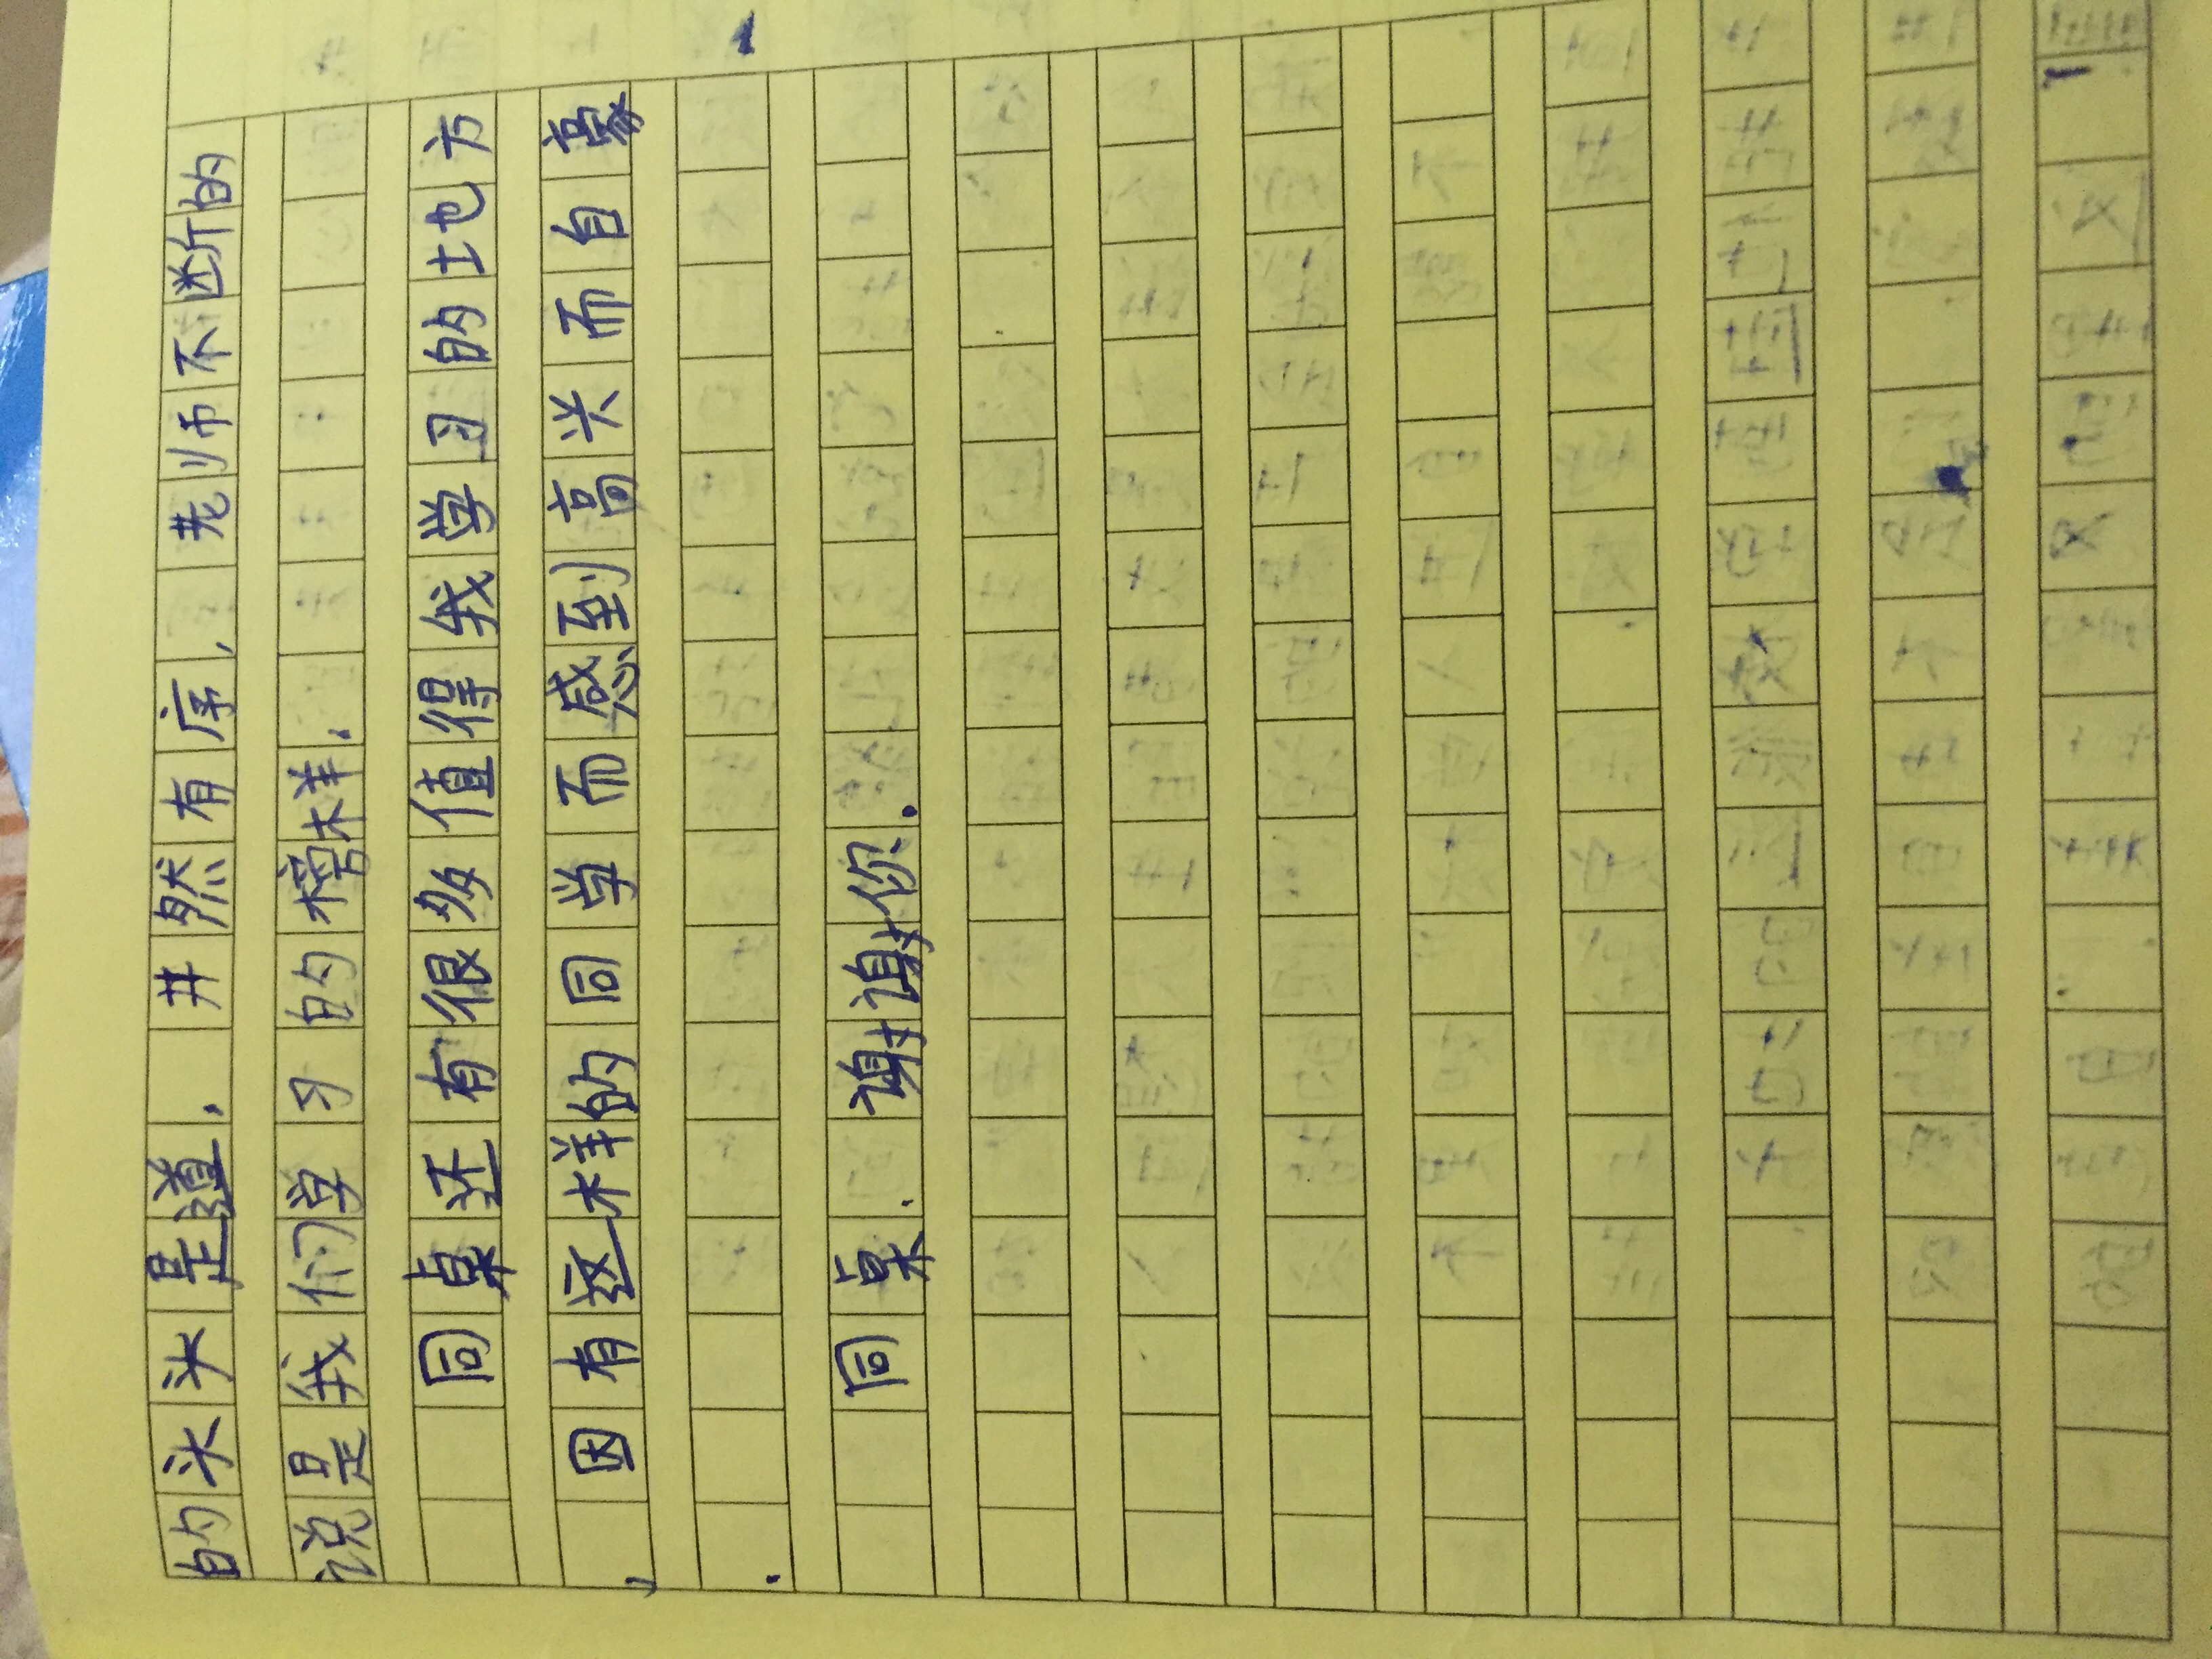 的头头是道，井然有序，老师不断的
说是我们学习的榜样，
同桌还有很多值得我学习的地方
，因有这样的同学而感到高兴而自豪
.
同桌.谢谢你.